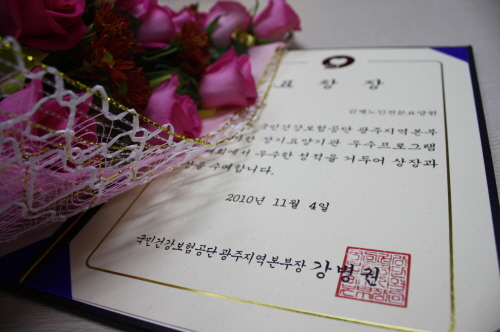 표 창 장
국민건강보험공단 광주지역본부
장기요양기관 우수프로그램
에서 우수한 성적을 거두어 상장과
을 수여합니다.
2010년 11월 4일
국민건강보험공단 광주지역본부장 강병권